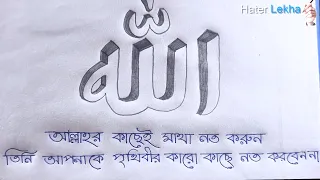 Hater Lekha
الله
আল্লাহর কাছেই মাথা নত করুন
তিনি আপনাকে পৃথিবীর কারো কাছে নত করবেননা